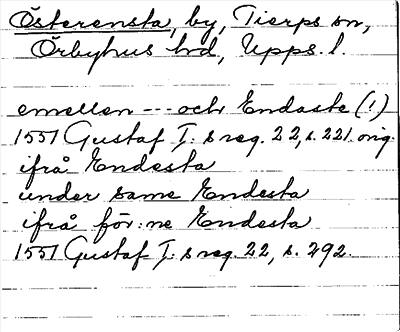 Österensta, by, Tierps sn,
Örbyhus hd, Upps. l.
emellen --- och Endaste (!)
1551 Gustaf I:s reg. 22, s. 221. orig.
ifrå Endesta
under same Endesta
ifrå för:ne Endesta
1551 Gustaf I:s reg. 22, s. 292.